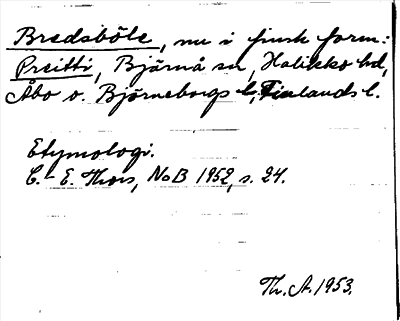 Bredsböle, nu i finsk form:
Preitti, Bjärnå sn, Halikko hd,
Åbo o. Björneborgs l, Finlands l.
Etymologi.
C.-E. Thors, NoB 1952, s. 24.
Th. A. 1953.